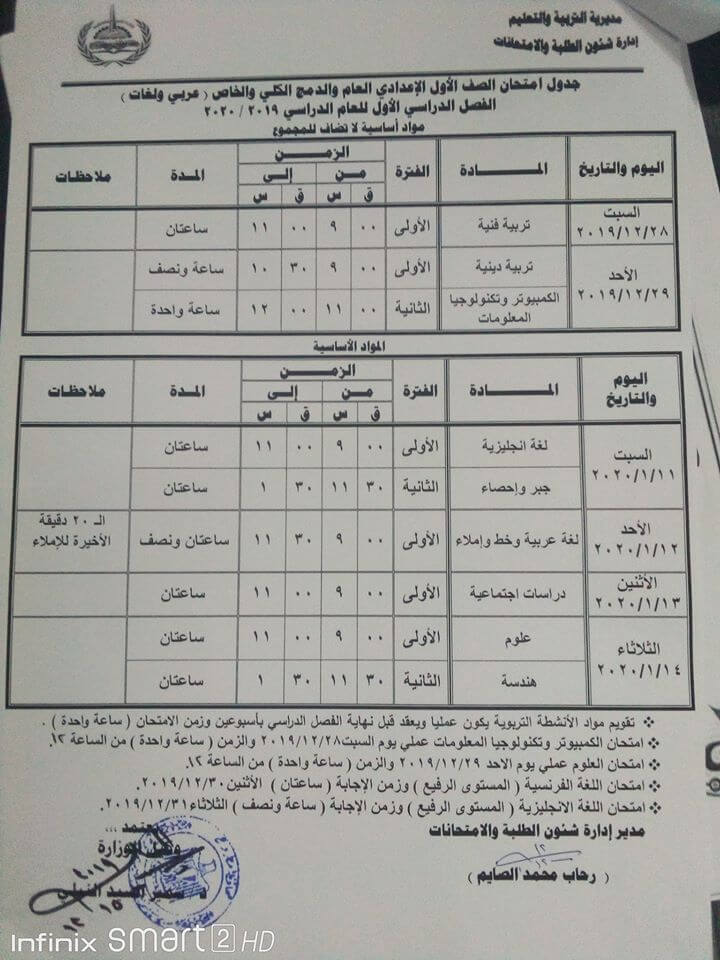 مديرية التربية والتعليم
إدارة شئون الطلبة والامتحانات
جدول امتحان الصف الأول الإعدادي العام والدمج الكلي والخاص ( عربي ولغات )
الفصل الدراسي الأول للعام الدراسي ٢٠١٩ / ٢٠٢٠
مواد أساسية لا تضاف للمجموع
اليوم والتاريخ المــادة الفترة الزمــن المدة ملاحظات
مـن إلى
ق س ق س
السبت ٢٠١٩/١٢/٢٨ تربية فنية الأولى ٠٠ ٩ ٠٠ ١١ ساعتان
الأحد ٢٠١٩/١٢/٢٩ تربية دينية الأولى ٠٠ ٩ ٣٠ ١٠ ساعة ونصف
الكمبيوتر وتكنولوجيا المعلومات الثانية ٠٠ ١١ ٠٠ ١٢ ساعة واحدة
المواد الأساسية
اليوم والتاريخ المــادة الفترة الزمــن المدة ملاحظات
مـن إلى
ق س ق س
السبت ٢٠٢٠/١/١١ لغة انجليزية الأولى ٠٠ ٩ ٠٠ ١١ ساعتان
جبر وإحصاء الثانية ٣٠ ١١ ٣٠ ١ ساعتان
الأحد ٢٠٢٠/١/١٢ لغة عربية وخط وإملاء الأولى ٠٠ ٩ ٣٠ ١١ ساعتان ونصف الـ ٢٠ دقيقة الأخيرة للإملاء
الأثنين ٢٠٢٠/١/١٣ دراسات اجتماعية الأولى ٠٠ ٩ ٠٠ ١١ ساعتان
الثلاثاء ٢٠٢٠/١/١٤ علوم الأولى ٠٠ ٩ ٠٠ ١١ ساعتان
هندسة الثانية ٣٠ ١١ ٣٠ ١ ساعتان
❖ تقويم مواد الأنشطة التربوية يكون عمليا ويعقد قبل نهاية الفصل الدراسي بأسبوعين وزمن الامتحان ( ساعة واحدة ) .
❖ امتحان الكمبيوتر وتكنولوجيا المعلومات عملي يوم السبت ٢٠١٩/١٢/٢٨ والزمن ( ساعة واحدة ) من الساعة ١٢.
❖ امتحان العلوم عملي يوم الاحد ٢٠١٩/١٢/٢٩ والزمن ( ساعة واحدة ) من الساعة ١٢.
❖ امتحان اللغة الفرنسية ( المستوى الرفيع ) وزمن الإجابة ( ساعتان ) الأثنين ٢٠١٩/١٢/٣٠.
❖ امتحان اللغة الانجليزية ( المستوى الرفيع ) وزمن الإجابة ( ساعة ونصف ) الثلاثاء ٢٠١٩/١٢/٣١.
مدير إدارة شئون الطلبة والامتحانات
( رحاب محمد الصايم )
يعتمد ...
وكيل الوزارة
Infinix SMART 2 HD